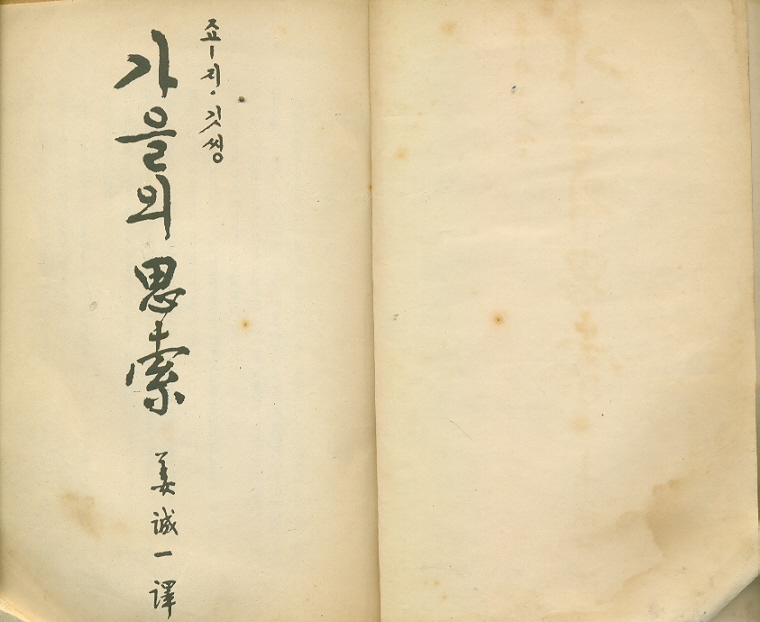 죠-지·깃씽
가을의 思索
姜誠一 譯